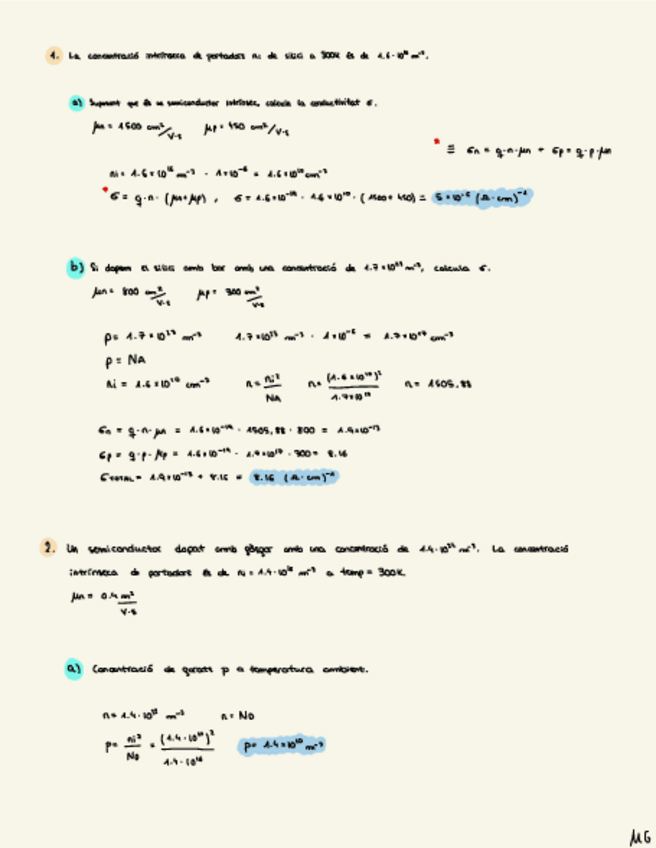 1. La concentració intrínseca de portadors ni de silici a 300K és de 1.6·10¹⁶ m⁻³.
a) Suposant que és un semiconductor intrínsec, calcula la conductivitat σ.
μn = 1500 cm²/V·s μp = 450 cm²/V·s
* ≡ σn = q·n·μn + σp = q·p·μn
ni = 1.6×10¹⁶ m⁻³ · 1×10⁻⁶ = 1.6×10¹⁰ cm⁻³
* σ = q·n·(μn+μp), σ = 1.6×10⁻¹⁹ · 1.6×10¹⁰ · (1500 + 450) = 5×10⁻⁶ (Ω·cm)⁻¹
b) Si dopem el silici amb bor amb una concentració de 1.7×10²³ m⁻³, calcula σ.
μn = 800 cm²/V·s μp = 300 cm²/V·s
p = 1.7×10²³ m⁻³ 1.7×10²³ m⁻³ · 1×10⁻⁶ = 1.7×10¹⁷ cm⁻³
p = NA
ni = 1.6×10¹⁰ cm⁻³ n = ni²/NA n = (1.6×10¹⁰)²/1.7×10¹⁷ n = 1505,88
σn = q·n·μn = 1.6×10⁻¹⁹ · 1505,88 · 800 = 1.9×10⁻¹³
σp = q·p·μp = 1.6×10⁻¹⁹ · 1.7×10¹⁷ · 300 = 8.16
σTOTAL = 1.9×10⁻¹³ + 8.16 = 8.16 (Ω·cm)⁻¹
2. Un semiconductor dopat amb amb una concentració de m⁻³. La concentració
intrínseca de portadors és de ni = 1.4·10¹⁶ m⁻³ a temp = 300K.
μn = 0.4 m²/V·s
a) Concentració de p a temperatura ambient.
n = 1.4·10²² m⁻³ n = ND
p = ni²/ND = p = 1.4×10¹⁰ m⁻³
MG